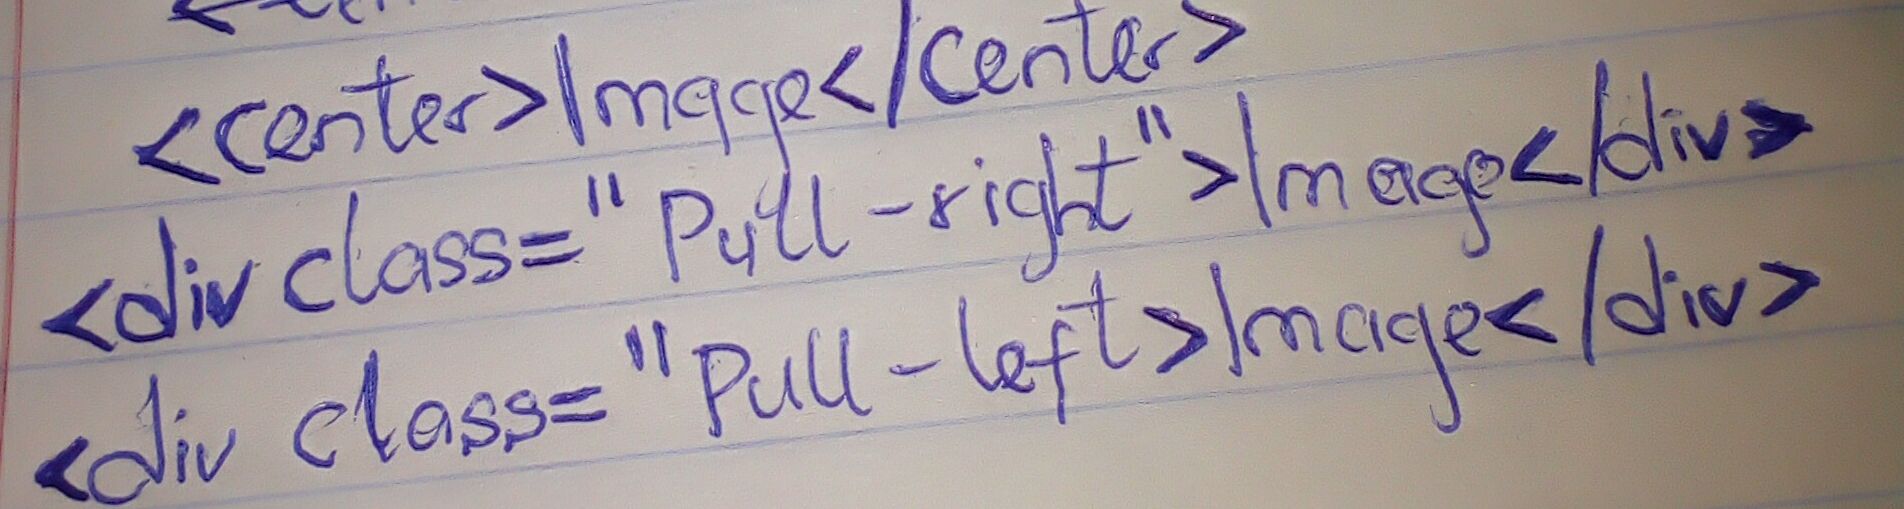 <center>Image</center>
<div class="Pull-right">Image</div>
<div class="Pull-left>Image</div>